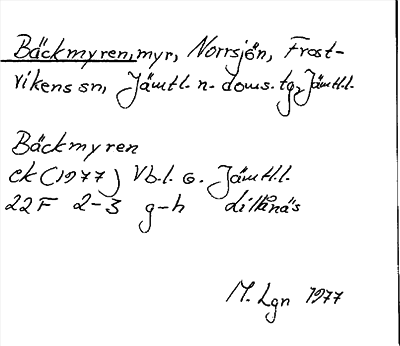 Bäckmyren, myr, Norrsjön, Frost-
vikens sn, Jämtl. n. doms. tg, Jämtl.l.
Bäckmyren
ek (1977) Vb.l. o. Jämtl.l.
22F 2-3 g-h Dikanäs
M. Lgn 1977